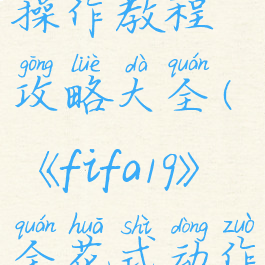 操作教程
gōng lüè dà quán
攻略大全(
《fifa19》
quán huā shì dòng zuò
全花式动作